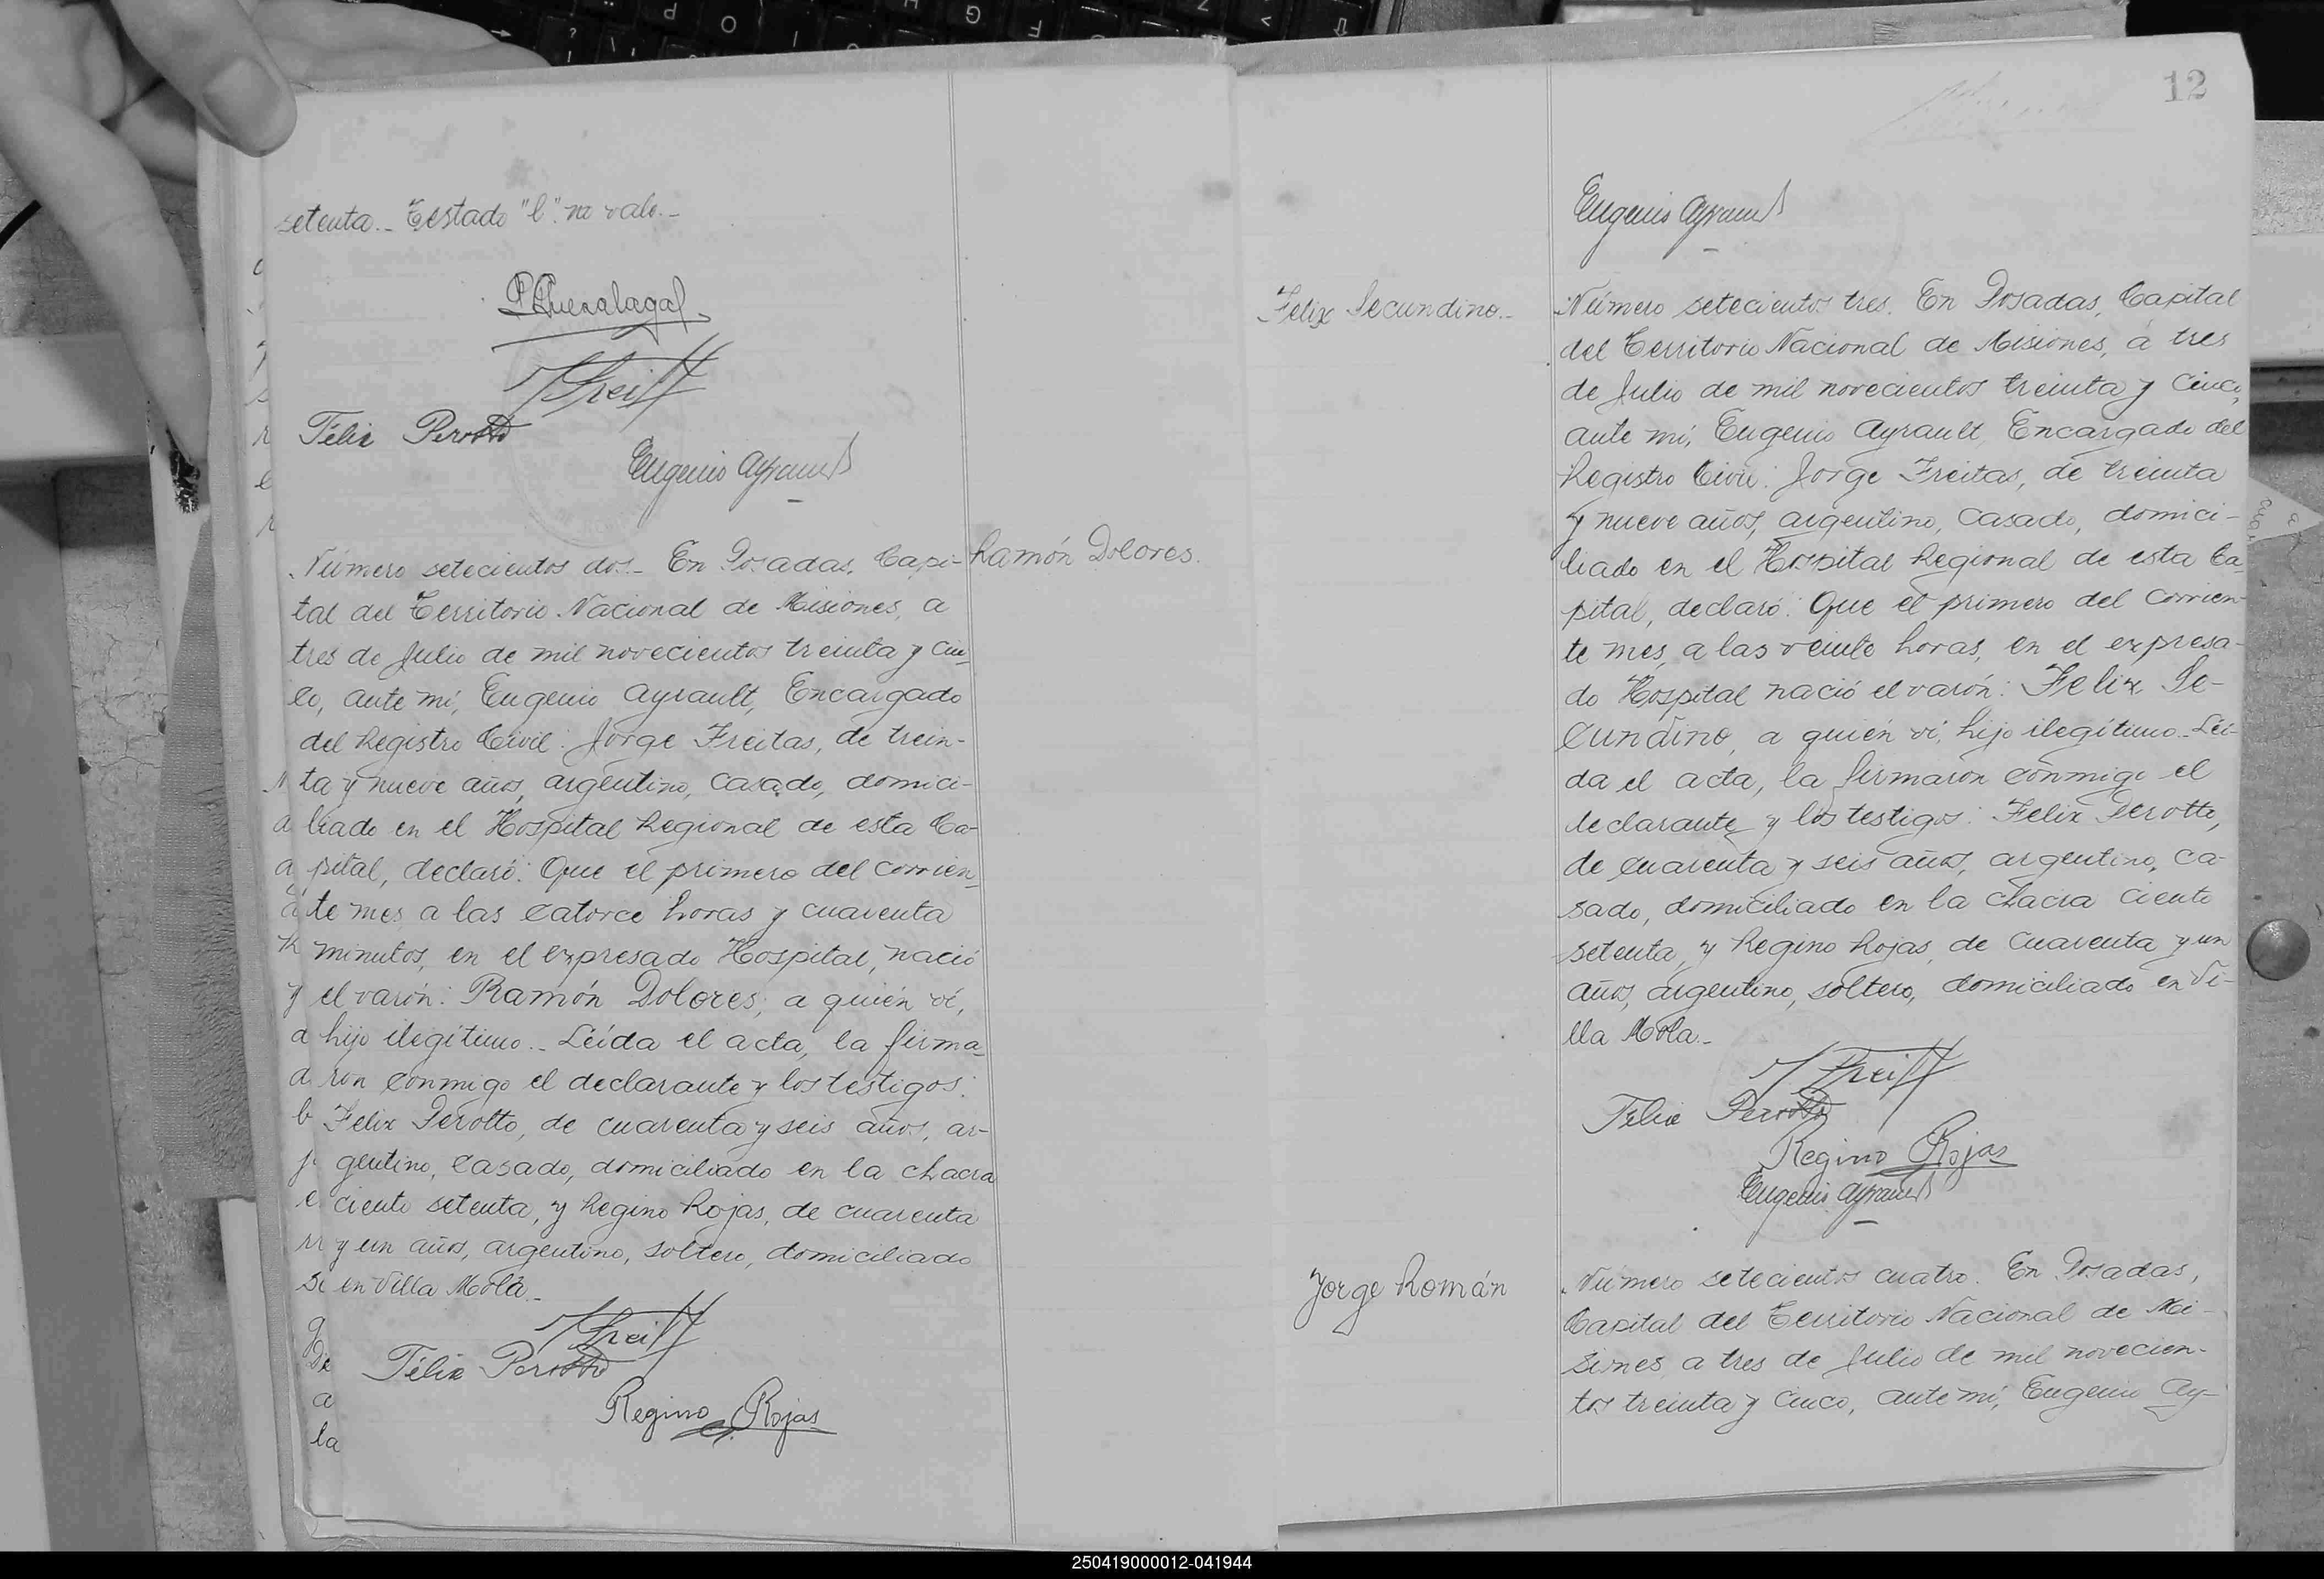 setenta._ Testado "l". no vale._
Félix Perotto
Eugenio Ayrault
Ramón Dolores.
Número setecientos dos._ En Posadas, Capi-
tal del Territorio Nacional de Misiones, a
tres de Julio de mil novecientos treinta y cin-
co, ante mí, Eugenio Ayrault, Encargado
del Registro Civil: Jorge Freitas, de trein-
ta y nueve años, argentino, casado, domici-
liado en el Hospital Regional de esta Ca-
pital, declaró: Que el primero del corrien-
te mes a las catorce horas y cuarenta
minutos, en el expresado Hospital, nació
el varón: Ramón Dolores; a quién ví,
hijo ilegítimo._ Leída el acta, la firma-
ron conmigo el declarante y los testigos:
Felix Perotto, de cuarenta y seis años, ar-
gentino, casado, domiciliado en la chacra
ciento setenta, y Regino Rojas, de cuarenta
y un años, argentino, soltero, domiciliado
en Villa Mola._
Félix Perotto
Regino Rojas
12
Eugenio Ayrault
Felix Secundino._
Número setecientos tres. En Posadas, Capital
del Territorio Nacional de Misiones, a tres
de Julio de mil novecientos treinta y cinco,
ante mí, Eugenio Ayrault, Encargado del
Registro Civil: Jorge Freitas, de treinta
y nueve años, argentino, casado, domici-
liado en el Hospital Regional de esta Ca-
pital, declaró: Que el primero del corrien-
te mes, a las veinte horas, en el expresa-
do Hospital nació el varón: Felix Se-
cundino, a quién ví, hijo ilegítimo._ Leí-
da el acta, la firmaron conmigo el
declarante y los testigos: Felix Perotto,
de cuarenta y seis años, argentino, ca-
sado, domiciliado en la chacra ciento
setenta, y Regino Rojas, de cuarenta y un
años, argentino, soltero, domiciliado en Vi-
lla Mola._
Félix Perotto
Regino Rojas
Eugenio Ayrault
Jorge Román
Número setecientos cuatro. En Posadas,
Capital del Territorio Nacional de Mi-
siones, a tres de Julio de mil novecien-
tos treinta y cinco, ante mí, Eugenio Ay-
250419000012-041944